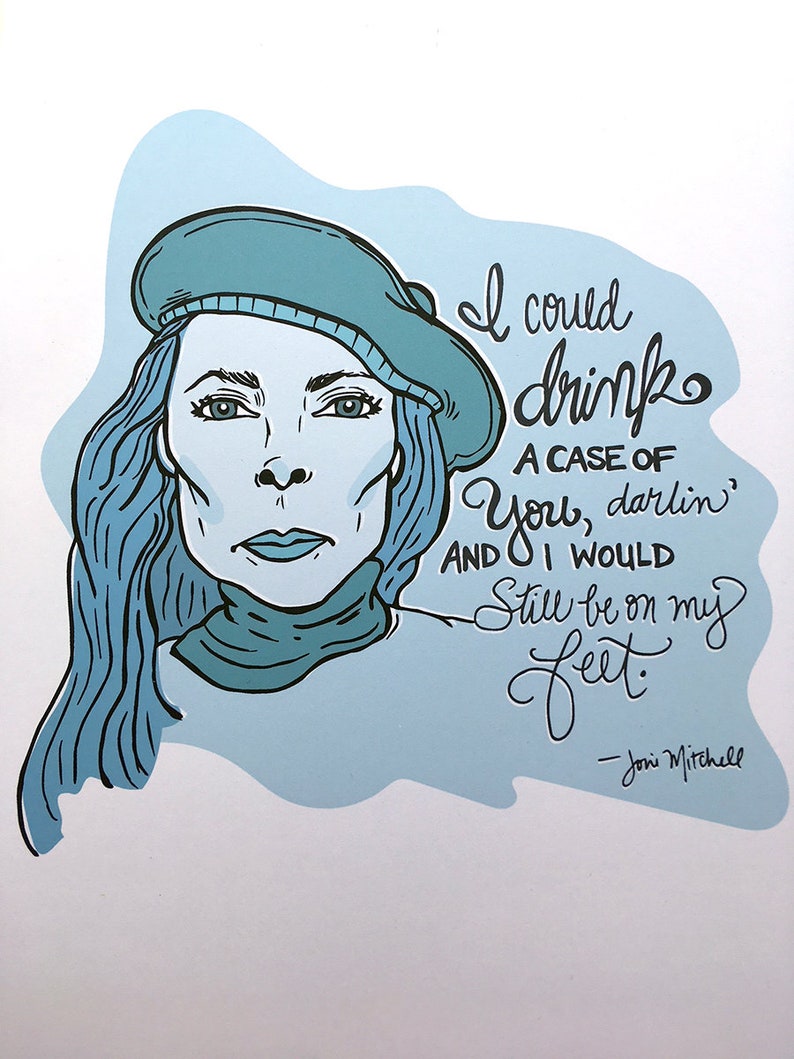 I could
drink
A CASE OF
You, darlin'
AND I WOULD
Still be on my
feet.
—Joni Mitchell